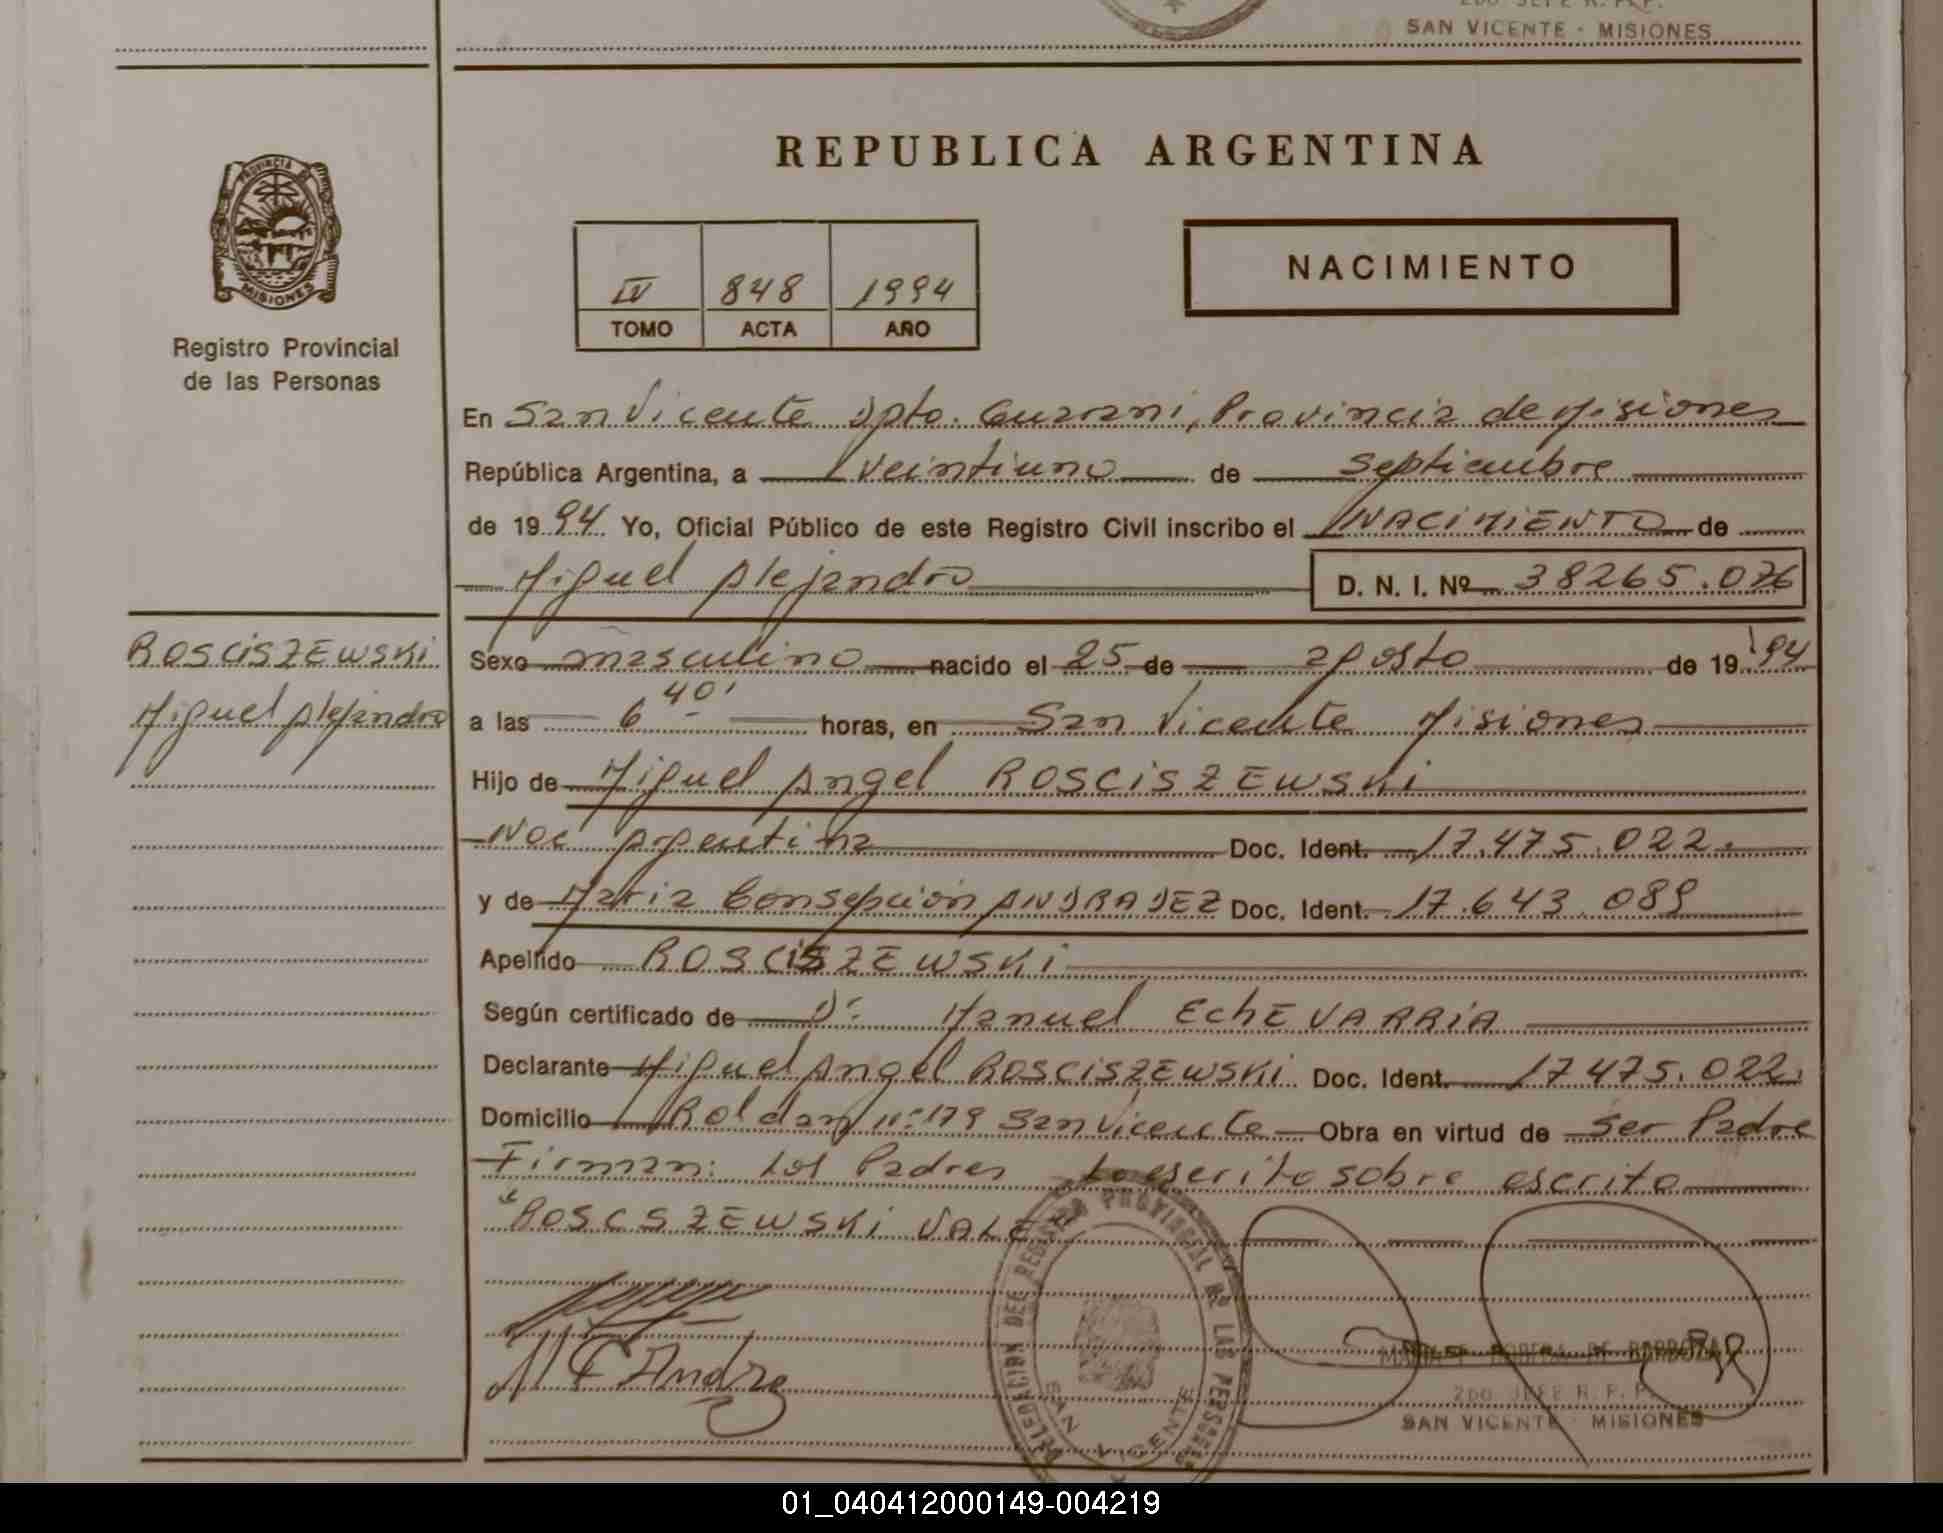 2do JEFE R. P. P.
SAN VICENTE - MISIONES
REPUBLICA ARGENTINA
PROVINCIA DE
MISIONES
Registro Provincial
de las Personas
IV 848 1994
TOMO ACTA AÑO
NACIMIENTO
En San Vicente Dpto. Guarani, Provincia de Misiones
República Argentina, a veintiuno de septiembre
de 1994 Yo, Oficial Público de este Registro Civil inscribo el NACIMIENTO de
Miguel Alejandro D. N. I. Nº 38265.076
ROSCISZEWSKI
Miguel Alejandro
Sexo masculino nacido el 25 de agosto de 19 94
a las 6 40' horas, en San Vicente Misiones
Hijo de Miguel Angel ROSCISZEWSKI
Nac Argentina Doc. Ident. 17.475.022.
y de Maria Consepcion ANDRADEZ Doc. Ident. 17.643.089
Apellido ROSCISZEWSKI
Según certificado de Dr. Manuel EchEVARRIA
Declarante Miguel Angel ROSCISZEWSKI Doc. Ident. 17475.022.
Domicilio Roldan nº 179 San Vicente Obra en virtud de Ser Padre
Firman: Los Padres Lo escrito sobre escrito
"ROSCSZEWSKI VALE"
M C Andra
DELEGACION DEL REGISTRO PROVINCIAL DE LAS PERSONAS
SAN VICENTE
2do JEFE R. P. P.
SAN VICENTE - MISIONES
01_040412000149-004219